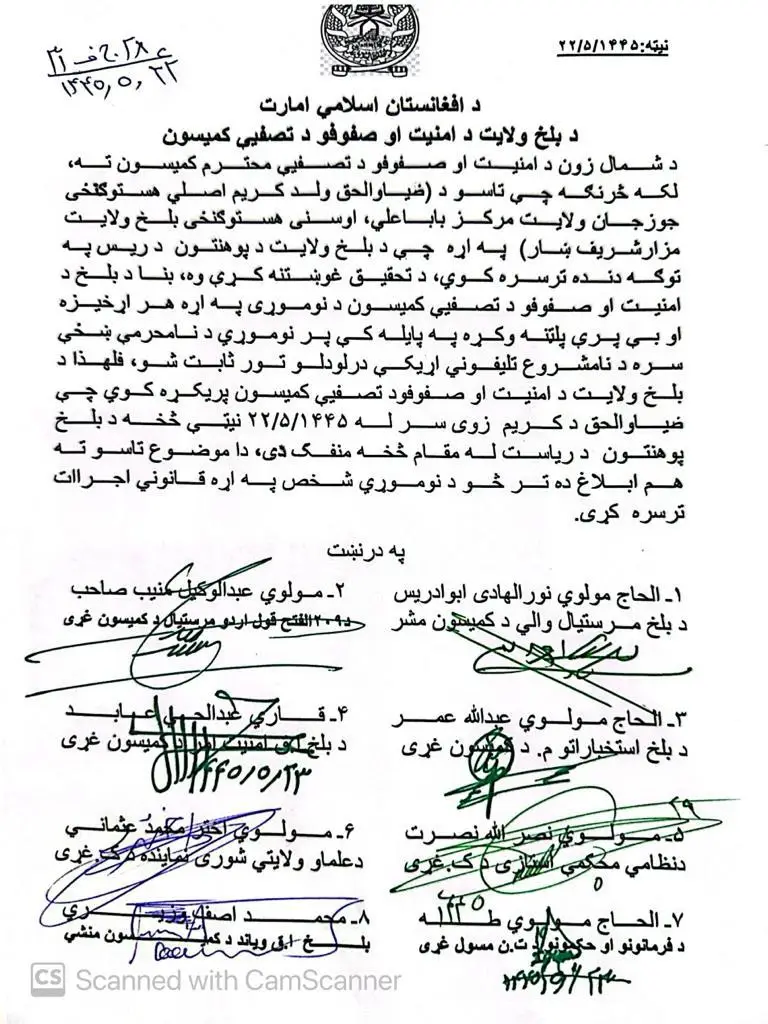 نېټه:۲۲/۵/۱۴۴۵
۱۴۴۵,۵,۲۲
د افغانستان اسلامي امارت
د بلخ ولایت د امنیت او صفوفو د تصفیې کمیسون
د شمال زون د امنیت او صفوفو د تصفیې محترم کمیسون ته،
لکه څرنګه چې تاسو د (ضیاوالحق ولد کریم اصلي هستوګنځی
جوزجان ولایت مرکز باباعلي، اوسنی هستوګنځی بلخ ولایت
مزارشریف ښار) په اړه چې د بلخ ولایت د پوهنتون د ریس په
توګه دنده ترسره کوي، د تحقیق غوښتنه کړې وه، بنا د بلخ د
امنیت او صفوفو د تصفیې کمیسون د نوموړی په اړه هر اړخیزه
او بې پرې پلټنه وکړه په پایله کې پر نوموړي د نامحرمې ښځې
سره د نامشروع تلیفوني اړیکې درلودلو تور ثابت شو، فلهذا د
بلخ ولایت د امنیت او صفوفود تصفیې کمیسون پریکړه کوي چې
ضیاوالحق د کریم زوی سر له ۲۲/۵/۱۴۴۵ نیټې څخه د بلخ
پوهنتون د ریاست له مقام څخه منفک دی، دا موضوع تاسو ته
هم ابلاغ ده تر څو د نوموړي شخص په اړه قانوني اجراات
ترسره کړی.
په درنښت
۱ـ الحاج مولوي نورالهادی ابوادریس
د بلخ مرستیال والي د کمیسون مشر
۲ـ مولوي عبدالوکیل منیب صاحب
د۲۰۹الفتح قول اردو مرستیال د کمیسون غړی
۳ـ الحاج مولوي عبدالله عمر
د بلخ استخباراتو م. د کمیسون غړی
۴ـ قاري عبدالحی عابد
د بلخ ا.ق امنیت امر د کمیسون غړی
۱۴۴۵/۵/۲۳
۵ـ مولوي نصر الله نصرت
دنظامي محکمې استازی د ک.غړی
۶ـ مولوي اختر محمد عثماني
دعلماو ولایتي شوری نماینده د ک.غړی
۷ـ الحاج مولوي طه
د فرمانونو او حکمونو د ت.ن مسول غړی
۸ـ محمد اصف وزیري
بلخ ا.ق ویاند د کمیسون منشي
CS Scanned with CamScanner